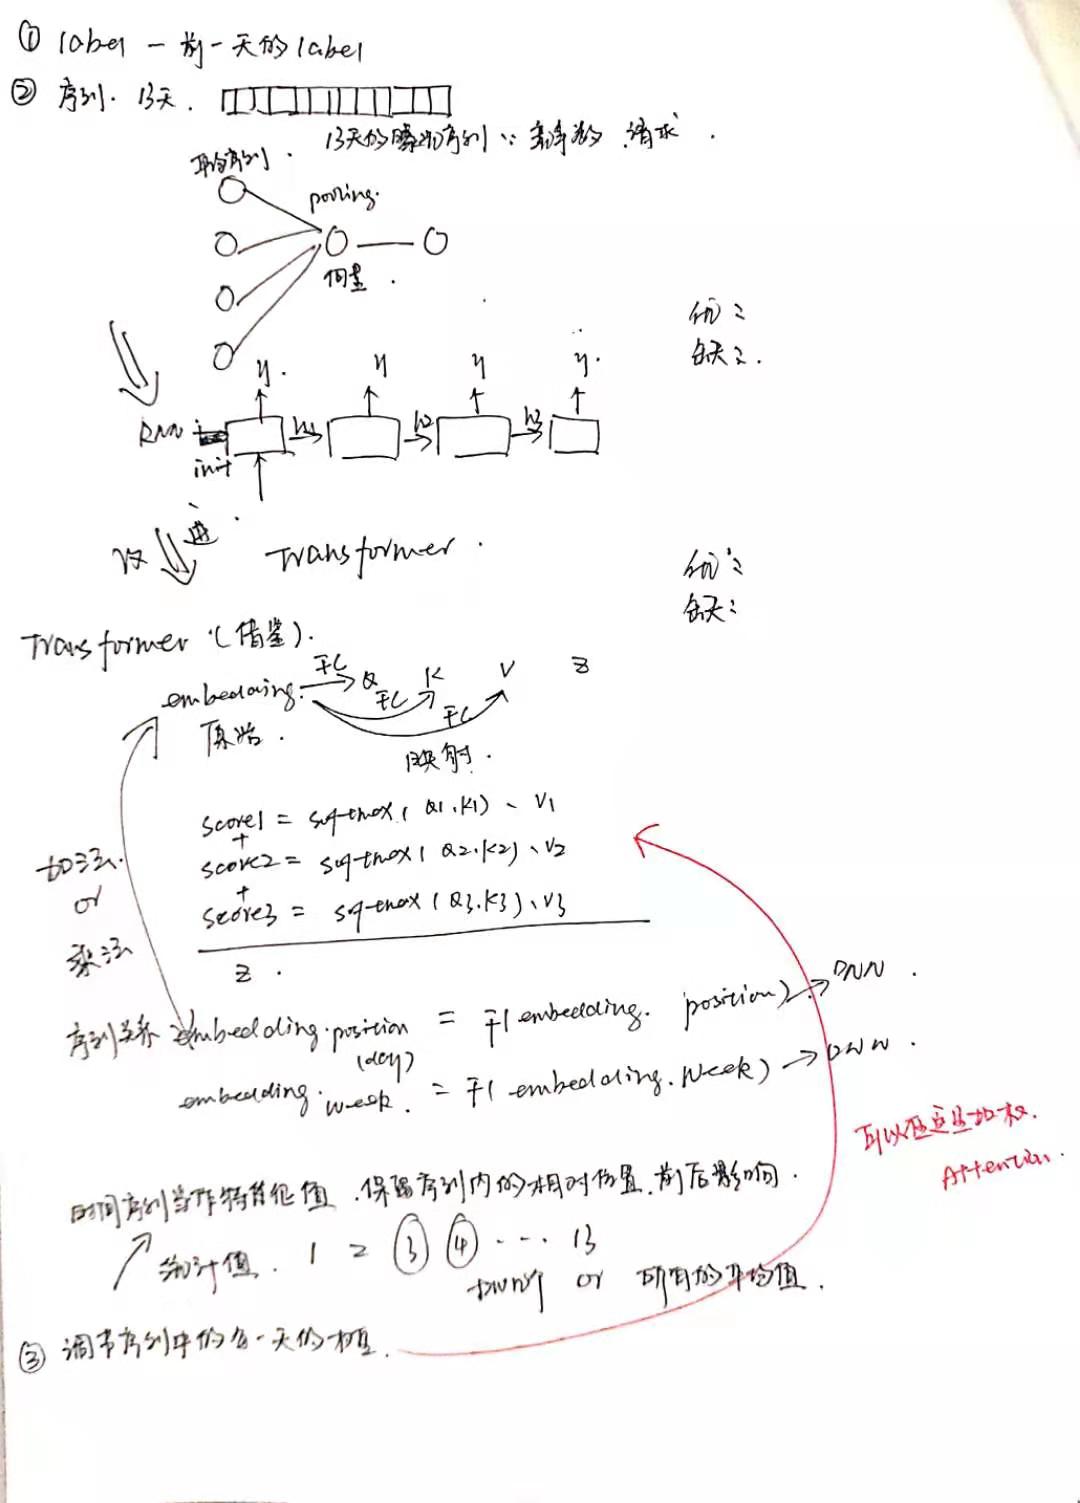 ① label — 前一天的label
② 序列. 13天.
13天的曝光序列 请求.
序列.
pooling.
向量.
优:
缺:
y. y y y.
RNN h1 h2 h3
init
改进. Transformer.
优:
缺:
Transformer (借鉴).
embedding. FC Q FC K FC V Z
原始. 映射.
score1 = softmax(Q1.K1)、V1
+
score2 = softmax(Q2.K2)、V2
+
score3 = softmax(Q3.K3)、V3
Z.
加法.
or
乘法
序列关系 embedding.position = F(embedding. position) → DNN.
(day)
embedding. week. = F(embedding.week) → DNN.
可以在这里加权.
Attention.
时间序列当作特征值.保留序列内的相对位置.前后影响.
统计值. 1 2 ③ ④ ··· 13
or 所有的平均值.
③ 调节序列中的每一天的权重.